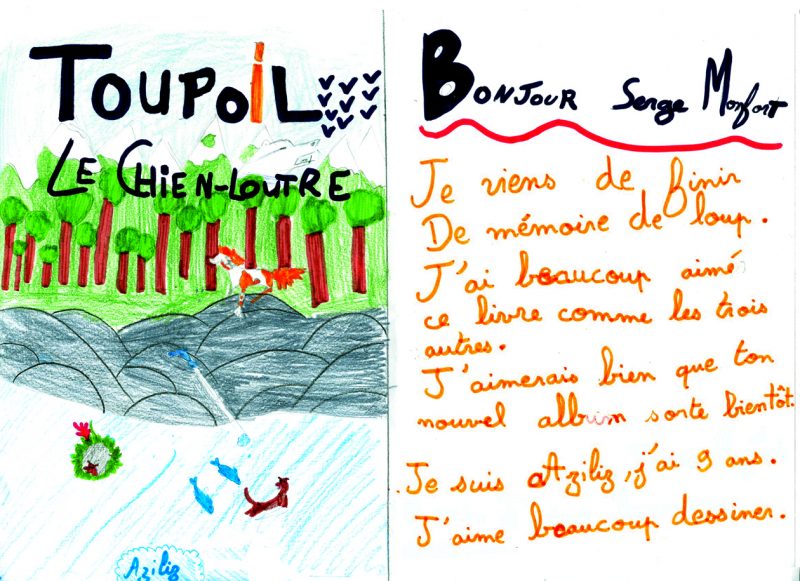 TOUPOIL
LE CHIEN-LOUTRE
Aziliz
BONJOUR Serge Monfort
Je viens de finir
De mémoire de loup.
J'ai beaucoup aimé
ce livre comme les trois
autres.
J'aimerais bien que ton
nouvel album sorte bientôt.
Je suis Aziliz, j'ai 9 ans.
J'aime beaucoup dessiner.